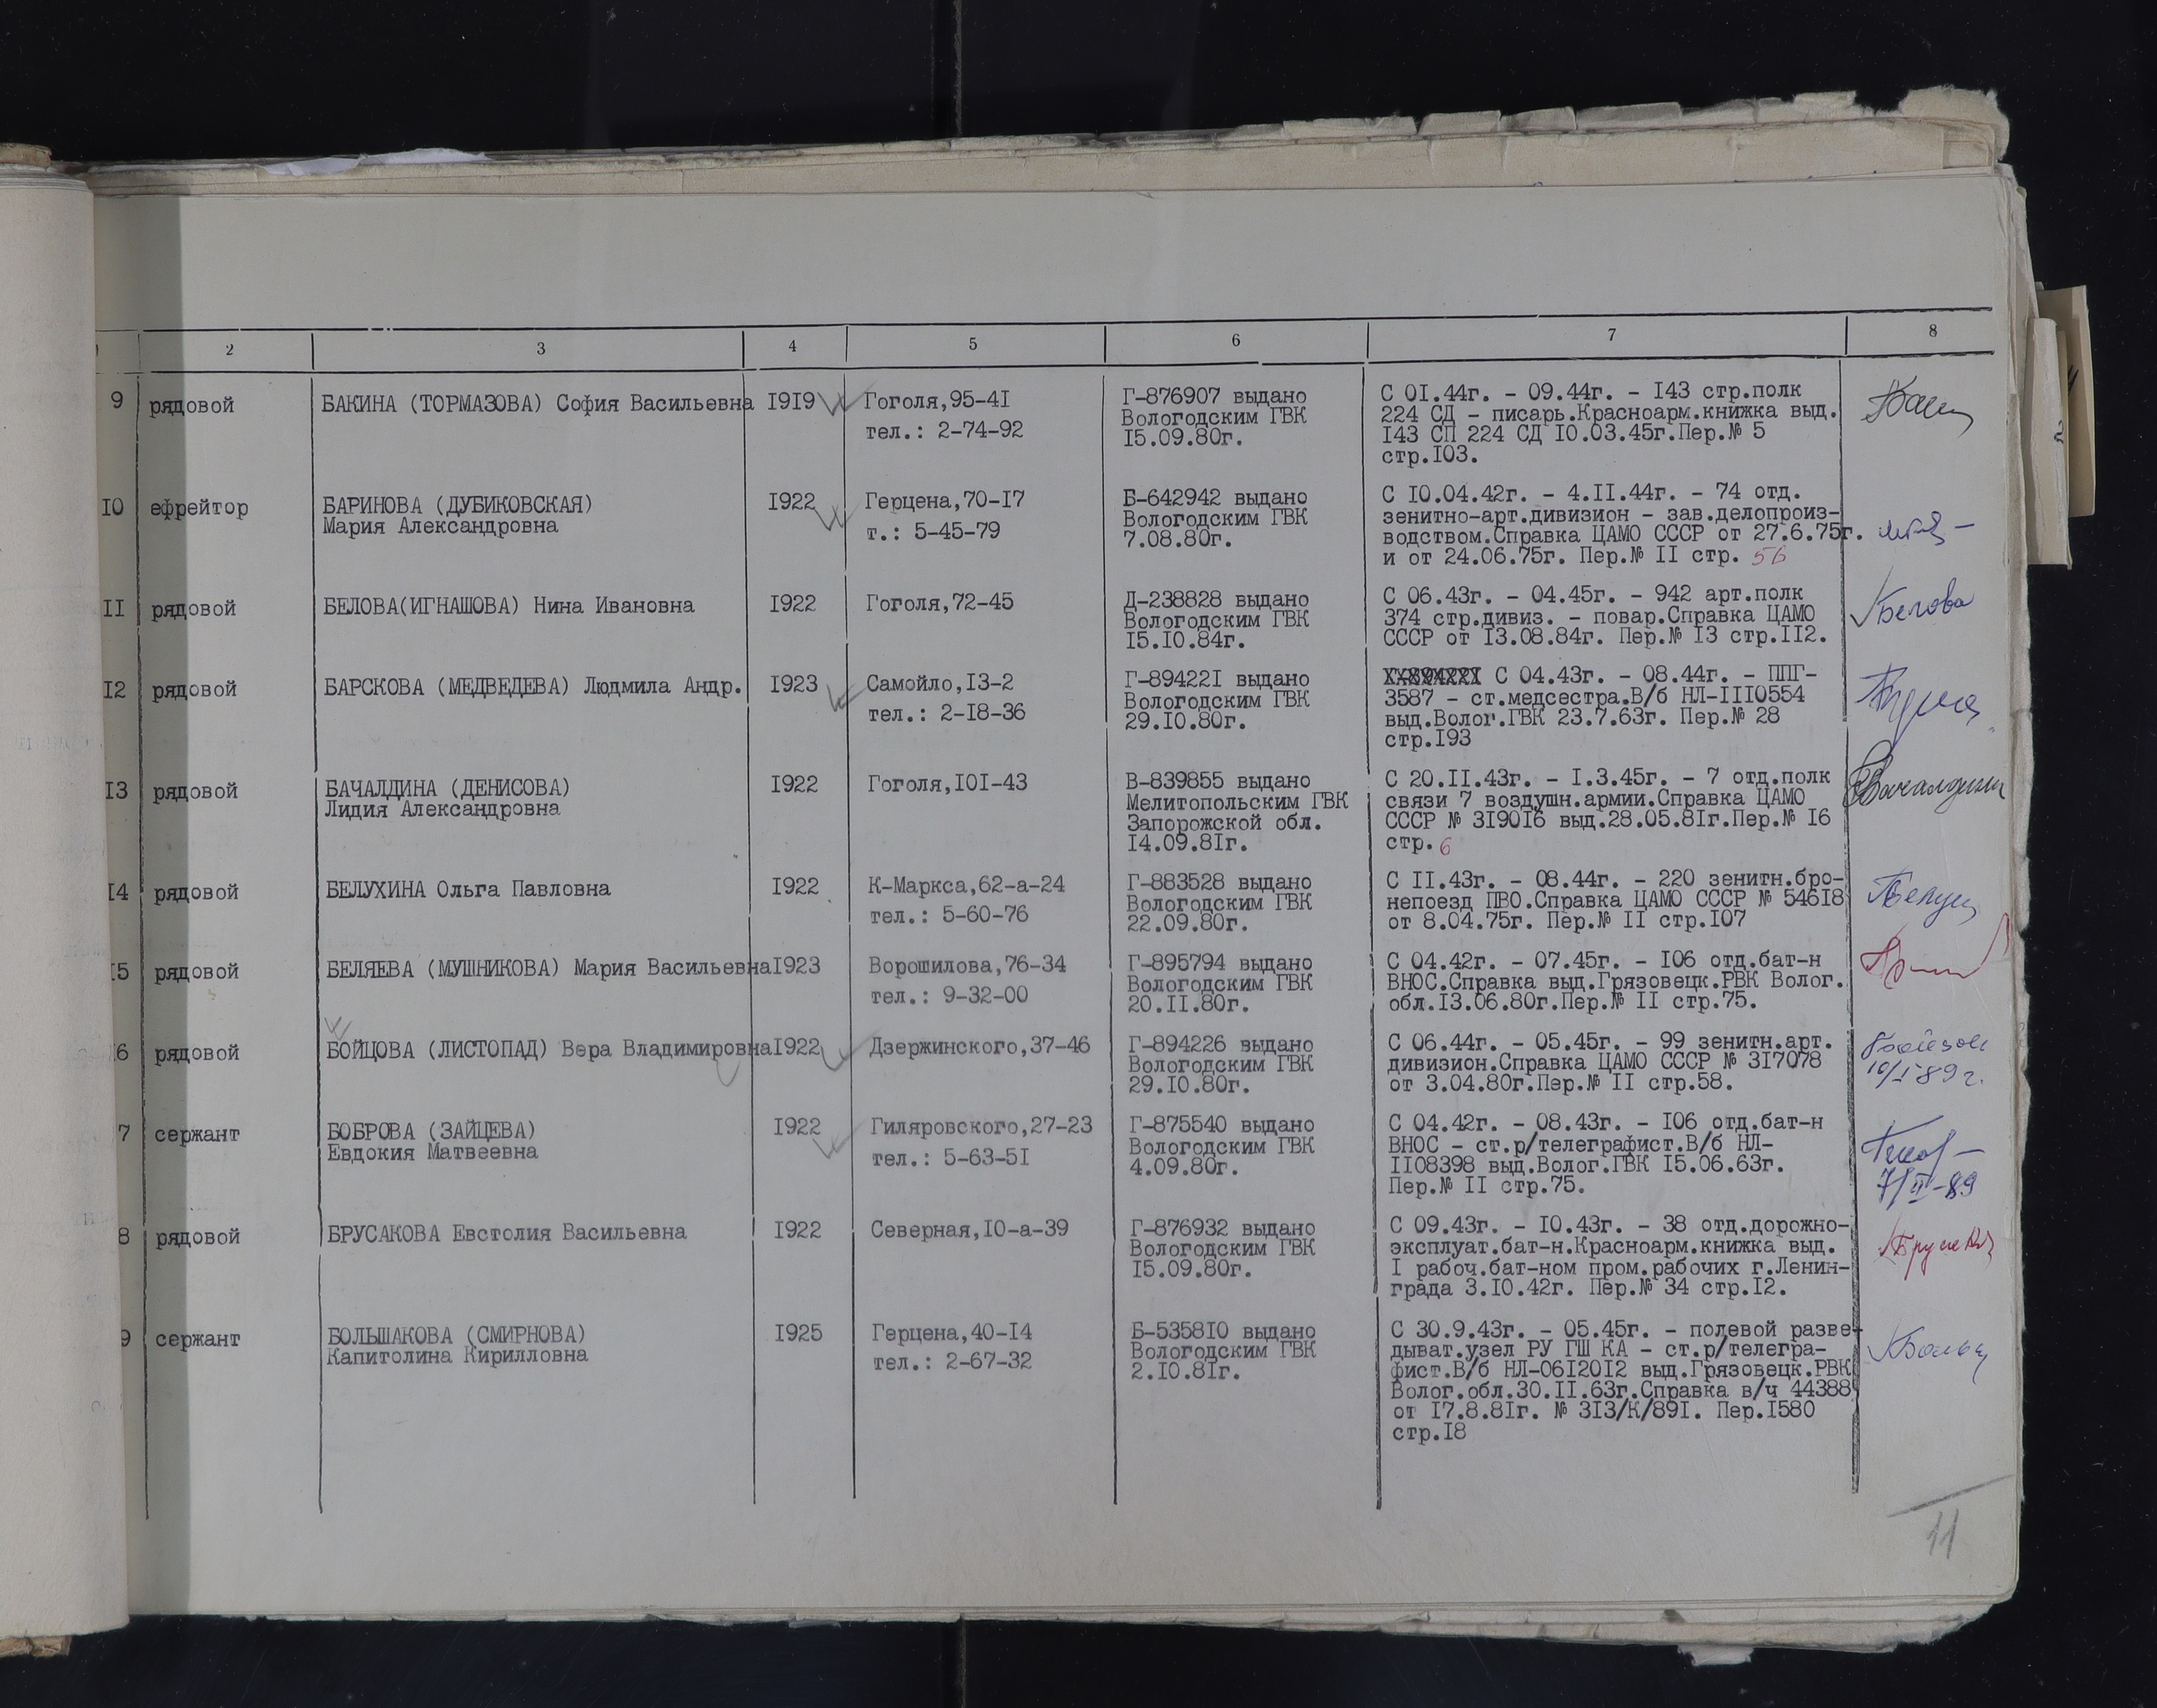 2 3 4 5 6 7 8
9 рядовой БАКИНА (ТОРМАЗОВА) София Васильевна I9I9 Гоголя,95-4I Г-876907 выдано С 0I.44г. - 09.44г. - I43 стр.полк
Вологодским ГВК 224 СД - писарь.Красноарм.книжка выд.
тел.: 2-74-92 I5.09.80г. I43 СП 224 СД I0.03.45г.Пер.№ 5
стр.I03.
I0 ефрейтор БАРИНОВА (ДУБИКОВСКАЯ) I922 Герцена,70-I7 Б-642942 выдано С I0.04.42г. - 4.II.44г. - 74 отд.
Мария Александровна Вологодским ГВК зенитно-арт.дивизион - зав.делопроиз-
т.: 5-45-79 7.08.80г. водством.Справка ЦАМО СССР от 27.6.75г.
и от 24.06.75г. Пер.№ II стр. 56
II рядовой БЕЛОВА(ИГНАШОВА) Нина Ивановна I922 Гоголя,72-45 Д-238828 выдано С 06.43г. - 04.45г. - 942 арт.полк Белова
Вологодским ГВК 374 стр.дивиз. - повар.Справка ЦАМО
I5.I0.84г. СССР от I3.08.84г. Пер.№ I3 стр.II2.
I2 рядовой БАРСКОВА (МЕДВЕДЕВА) Людмила Андр. I923 Самойло,I3-2 Г-89422I выдано С 04.43г. - 08.44г. - ППГ-
Вологодским ГВК 3587 - ст.медсестра.В/б НЛ-III0554
тел.: 2-I8-36 29.I0.80г. выд.Волог.ГВК 23.7.63г. Пер.№ 28
стр.I93
I3 рядовой БАЧАЛДИНА (ДЕНИСОВА) I922 Гоголя,I0I-43 В-839855 выдано С 20.II.43г. - I.3.45г. - 7 отд.полк
Лидия Александровна Мелитопольским ГВК связи 7 воздушн.армии.Справка ЦАМО
Запорожской обл. СССР № 3I90I6 выд.28.05.8Iг.Пер.№ I6
I4.09.8Iг. стр. 6
I4 рядовой БЕЛУХИНА Ольга Павловна I922 К-Маркса,62-а-24 Г-883528 выдано С II.43г. - 08.44г. - 220 зенитн.бро-
Вологодским ГВК непоезд ПВО.Справка ЦАМО СССР № 546I8
тел.: 5-60-76 22.09.80г. от 8.04.75г. Пер.№ II стр.I07
I5 рядовой БЕЛЯЕВА (МУШНИКОВА) Мария Васильевна I923 Ворошилова,76-34 Г-895794 выдано С 04.42г. - 07.45г. - I06 отд.бат-н
Вологодским ГВК ВНОС.Справка выд.Грязовецк.РВК Волог.
тел.: 9-32-00 20.II.80г. обл.I3.06.80г.Пер.№ II стр.75.
6 рядовой БОЙЦОВА (ЛИСТОПАД) Вера Владимировна I922 Дзержинского,37-46 Г-894226 выдано С 06.44г. - 05.45г. - 99 зенитн.арт.
Вологодским ГВК дивизион.Справка ЦАМО СССР № 3I7078 10/I-89г.
29.I0.80г. от 3.04.80г.Пер.№ II стр.58.
7 сержант БОБРОВА (ЗАЙЦЕВА) I922 Гиляровского,27-23 Г-875540 выдано С 04.42г. - 08.43г. - I06 отд.бат-н
Евдокия Матвеевна Вологодским ГВК ВНОС - ст.р/телеграфист.В/б НЛ-
тел.: 5-63-5I 4.09.80г. II08398 выд.Волог.ГВК I5.06.63г.
Пер.№ II стр.75. 7/II-89
8 рядовой БРУСАКОВА Евстолия Васильевна I922 Северная,I0-а-39 Г-876932 выдано С 09.43г. - I0.43г. - 38 отд.дорожно-
Вологодским ГВК эксплуат.бат-н.Красноарм.книжка выд.
I5.09.80г. I рабоч.бат-ном пром.рабочих г.Ленин-
града 3.I0.42г. Пер.№ 34 стр.I2.
9 сержант БОЛЬШАКОВА (СМИРНОВА) I925 Герцена,40-I4 Б-5358I0 выдано С 30.9.43г. - 05.45г. - полевой разве-
Капитолина Кирилловна Вологодским ГВК дыват.узел РУ ГШ КА - ст.р/телегра-
тел.: 2-67-32 2.I0.8Iг. фист.В/б НЛ-06I20I2 выд.Грязовецк.РВК
Волог.обл.30.II.63г.Справка в/ч 44388
от I7.8.8Iг. № 3I3/К/89I. Пер.I580
стр.I8
11